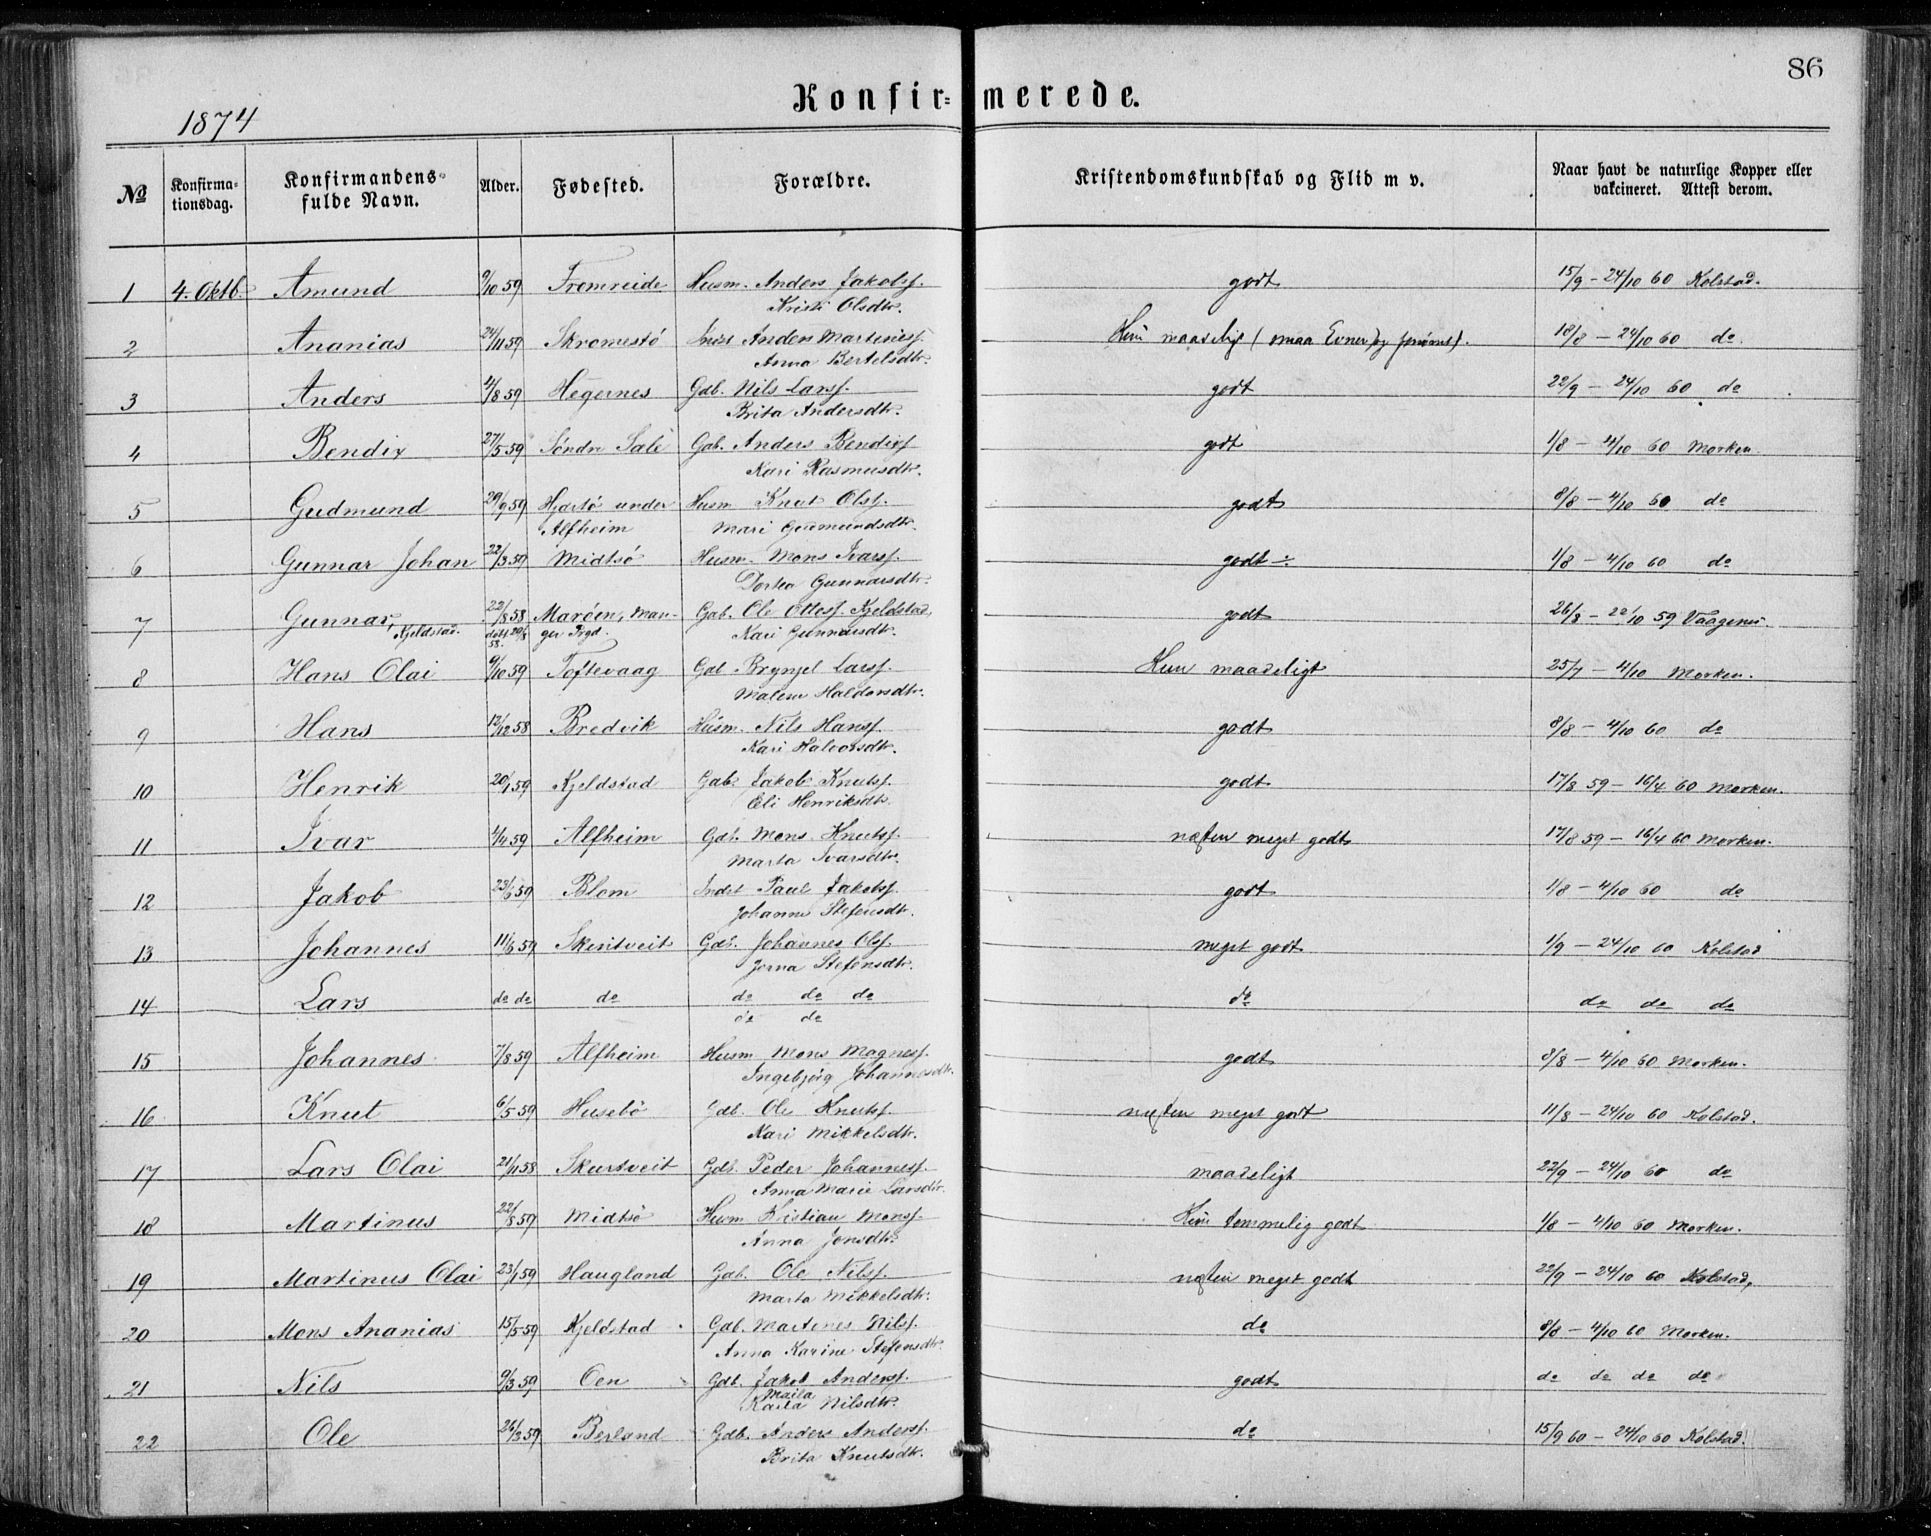 86
Konfir= merede.
1874
№ Konfirma- tionsdag. Konfirmandens fulde Navn. Alder. Fødested. Forældre. Kristendomskundskab og Flid m v. Naar havt de naturlige Kopper eller vakcineret. Attest derom.
1 4. Oktb. Amund 9/10 59 Fromreide Husm. Anders Jakobsf. godt 15/9 – 24/10 60 Kolstad.
Kristi Olsdtr.
2 Ananias 24/11 59 Skromestö Inds Anders Martinesf. Kun maadeligt (smaa Evner) og 18/8 – 24/10 60 do.
Anna Bertelsdtr.
3 Anders 4/8 59 Hegernes Gdb. Nils Larsf. godt 22/9 – 24/10 60 do
Brita Andersdtr.
4 Bendix 27/5 59 Søndre Sæle Gdb. Anders Bendixf godt 1/8 – 4/10 60 Morken.
Kari Rasmusdtr.
5 Gudmund 29/9 59 Hjertö under Husm Knut Olsf. godt 8/8 – 4/10 60 do
Alfheim Mari Gudmundsdtr.
6 Gunnar Johan 22/3 59 Midtsö Husm. Mons Ivarsf. godt ÷ 1/8 – 4/10 60 do
Dortea Gunnarsdtr.
7 Gunnar, 22/8 58 Maröen, Man- Gab. Ole Ottesf. Kjeldstad, godt 26/8 – 22/10 59 Vaagenes.
Kjeldstad. ger Prgd. Kari Gunnarsdtr.
58.
8 Hans Olai 9/10 59 Toftevaag Gdb. Brynjel Larsf. Kun maadeligt 25/7 – 4/10 Morken.
Malene Haldorsdtr.
9 Hans 12/12 58 Bredvik Husm. Nils Hansf. godt 8/8 – 4/10 60 do
Kari Halvorsdtr.
10 Henrik 20/1 59 Kjeldstad Gab. Jakob Knutsf. godt 17/8 59 – 16/4 60 Morken.
Eli Henriksdtr.
11 Ivar 4/4 59 Alfheim Gdb. Mons Knutsf. næsten meget godt 17/8 59 – 16/4 60 Morken.
Marta Ivarsdtr.
12 Jakob 23/6 59 Blom Inds Paul Jakobsf. godt 1/8 – 4/10 60 do
Johanne Stefensdtr.
13 Johannes 11/6 59 Skurtveit Gdb. Johannes Olsf. meget godt 1/9 – 24/10 60 Kolstad
Jorna Stefensdtr.
14 Lars do do do do do do do do do do
do do
15 Johannes 7/8 59 Alfheim Husm Mons Magnesf. godt 8/8 – 4/10 60 Morken.
Ingebjörg Johannesdtr.
16 Knut 6/5 59 Husebö Gdb. Ole Knutsf. næsten meget godt 11/8 – 24/10 60 Kolstad.
Kari Mikkelsdtr.
17 Lars Olai 21/11 58 Skurtveit Gdb. Peder Johannesf. maadeligt 22/9 – 24/10 60 do
Anna Marie Larsdtr.
18 Martinus 22/8 59 Midtsö Husm Kristian Monsf. Kun temmelig godt 1/8 – 4/10 60 Morken.
Anna Jonsdtr.
19 Martinus Olai 23/1 59 Haugland Gab. Ole Nilsf. næsten meget godt 22/9 – 24/10 60 Kolstad,
Marta Mikkelsdtr.
20 Mons Ananias 15/5 59 Kjeldstad Gdb. Martines Nilsf. do 8/8 – 4/10 60 Morken.
Anna Karine Stefensdtr.
21 Nils 9/3 59 Oen Gdb. Jakob Andersf. godt do do do do
Maila
Karta Nilsdtr.
22 Ole 26/3 59 Berland Gdb. Anders Andersf. do 15/9 60 – 24/10 60 Kolstad.
Brita Knutsdtr.